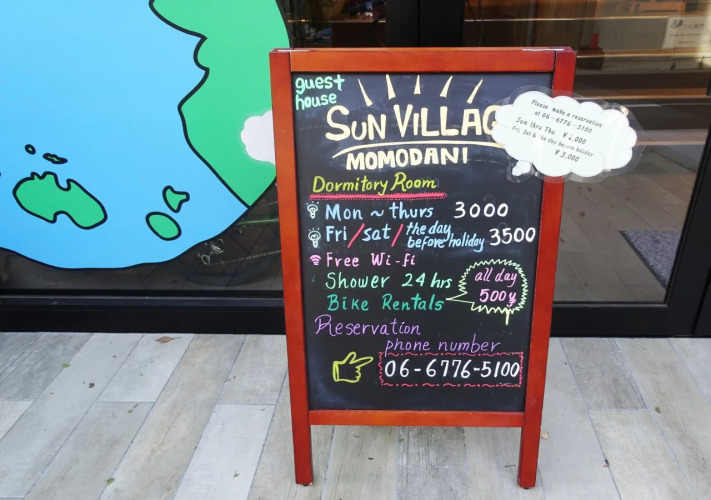 guest
house
SUN VILLAG
MOMODANI
Please make a reservation
at 06-6776-5100
Sun thru Thu ¥2,000
Fri, Sat & the day before holiday
¥3,000
Dormitory Room
Mon ~ thurs 3000
Fri/sat/the day before holiday 3500
Free Wi-Fi
Shower 24 hrs
Bike Rentals
all day
500y
Reservation
phone number
06-6776-5100